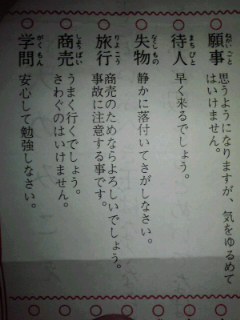 願事 思うようになりますが、気をゆるめて
はいけません。
待人 早く来るでしょう。
失物 静かに落付いてさがしなさい。
旅行 商売のためならよろしいでしょう。
事故に注意する事です。
商売 うまく行くでしょう。
さわぐのはいけません。
学問 安心して勉強しなさい。